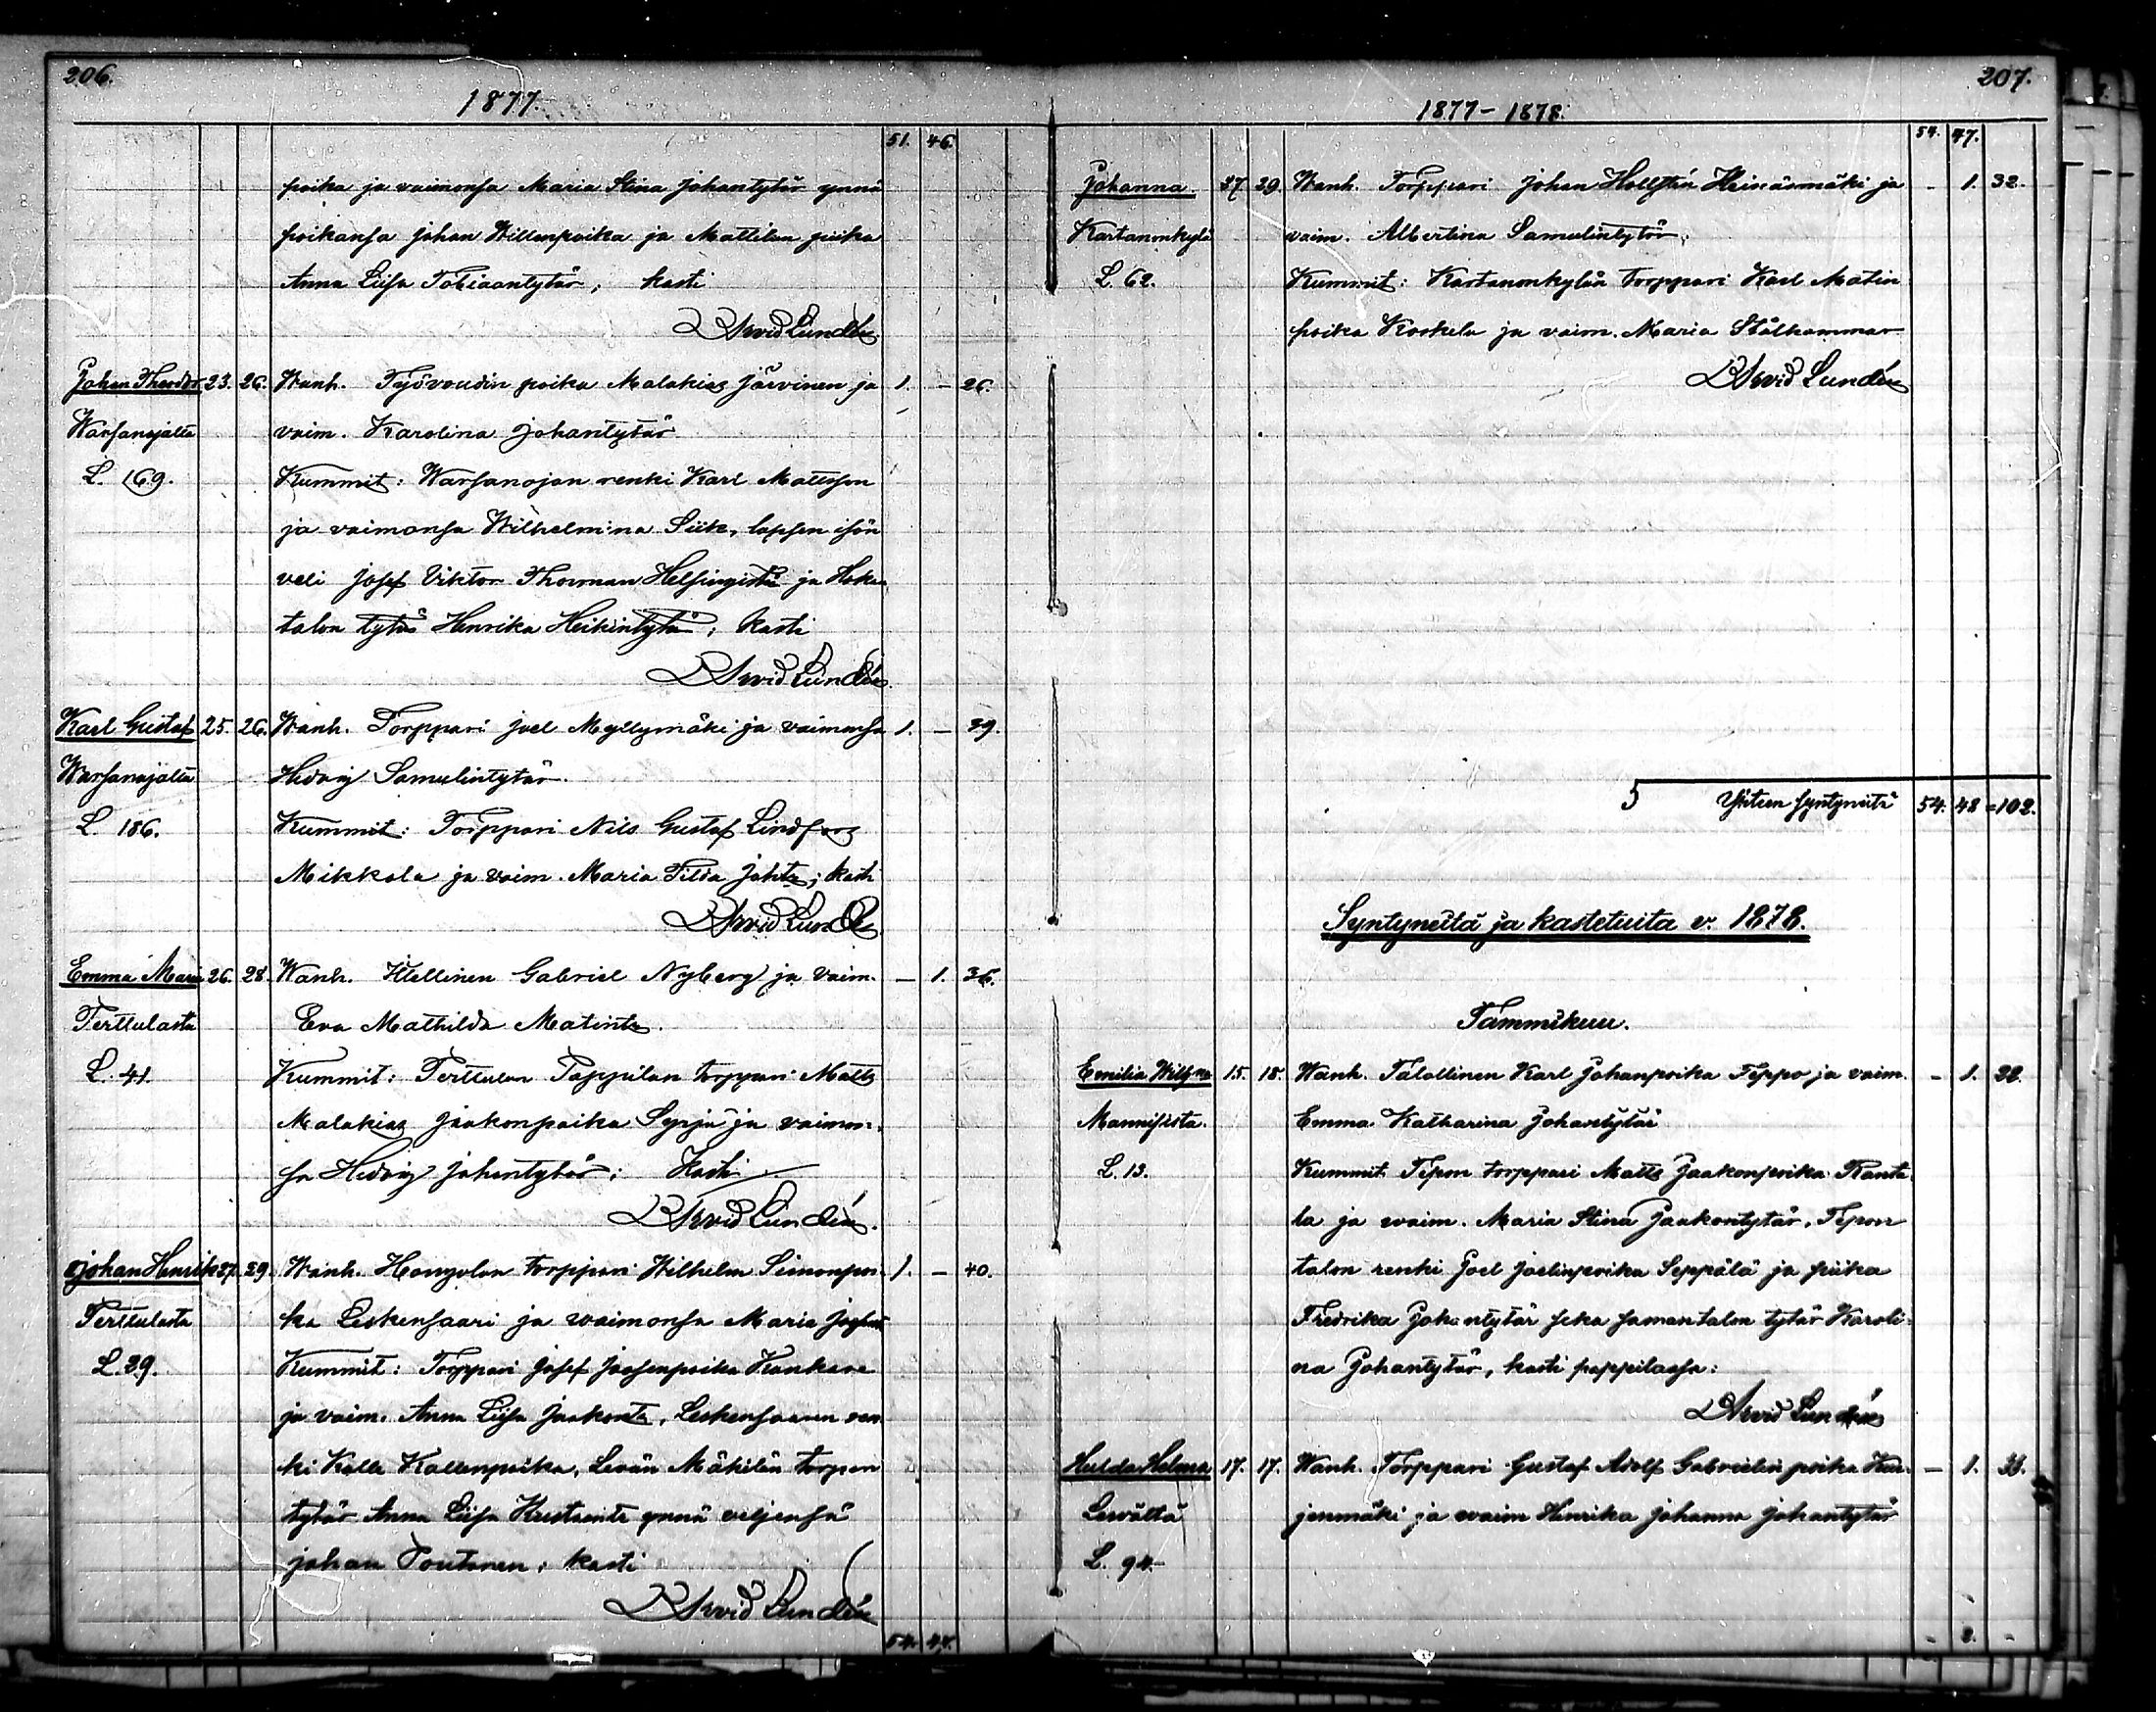 206.
1877.
51. 46.
poika ja vaimonsa Maria Stina Johantytär ynnä
poikansa Johan Willenpoika ja Mattilan piika
Anna Liisa Tobiaantytär; kasti
Arvid Lundén
Johan Theodor 23. 26. Wanh. Työvoudin poika Malakias Järvinen ja 1. - 26.
Warsanojalta vaim. Karolina Johantytär
L. 169. Kummit: Warsanojan renki Karl Mattsson
ja vaimonsa Wilhelmina Siik, lapsen isän
veli Josef Viktor Thorman Helsingistä ja
talon tytär Henrika Heikintytär; kasti
Arvid Lundén
Karl Gustaf 25. 26. Wanh. Torppari Joel Myllymäki ja vaimonsa 1. - 39.
Warsanojalta Hedvig Samulintytär.
L. 186. Kummit: Torppari Nils Gustaf Lindfors
Mikkola ja vaim. Maria Tilda Johtr; kasti
Arvid Lundén
Emma Maria 26. 28. Wanh. Itellinen Gabriel Nyberg ja vaim. - 1. 36.
Terttulasta Eva Mathilda Matintr.
L. 41. Kummit: Terttulan Pappilan torppari Matts
Malakias Jaakonpoika Syrjä ja vaimon-
sa Hedvig Johantytär; Kasti
Arvid Lundén.
Johan Henrik 27. 29. Wanh. Hongolon torppari Wilhelm Simonpoi- 1. - 40.
Terttulasta ka Leskensaari ja vaimonsa Maria
L. 29. Kummit: Torppari Josef Joosenpoika Kankare
ja vaim. Anna Liisa Jaakontr, Leskensaaren ren-
ki Kalle Kallenpoika, Levän Mäkilän torpan
tytär Anna Liisa Kustaantr ynnä veljensä
Johan Toutonen; kasti
Arvid Lundén
54. 47.
207.
1877-1878.
54. 47.
Johanna 27. 29. Wanh. Torppari Johan Hellstén Heinäsmäki ja - 1. 32.
Kartanonkylä vaim. Albertina Samulintytär.
L. 62. Kummit: Kartanonkylän torppari Karl Matin
poika Koskela ja vaim. Maria Stålhammar
Arvid Lundén
Yhteen syntyneitä 54. 48 = 102.
Syntyneitä ja kastetuita v. 1878.
Tammikuu.
Emilia Wilhna 15. 18. Wanh. Talollinen Karl Johanpoika Teppo ja vaim. - 1. 22.
Mannisista. Emma Katharina Johantytär
L. 13. Kummit Tepon torppari Matts Jaakonpoika Ranta-
la ja vaim. Maria Stina Jaakontytär, Tepon
talon renki Joel Joelinpoika Seppälä ja piika
Fredrika Johantytär seka saman talon tytär Karoli-
na Johantytär, kasti pappilassa:
Arvid Lundén
Hulda Helena 17. 17. Wanh. Torppari Gustaf Adolf Gabrielin poika Kur- - 1.
Levältä jenmäki ja vaim Henrika Johanna Johantytär
L. 94.
- 2. -